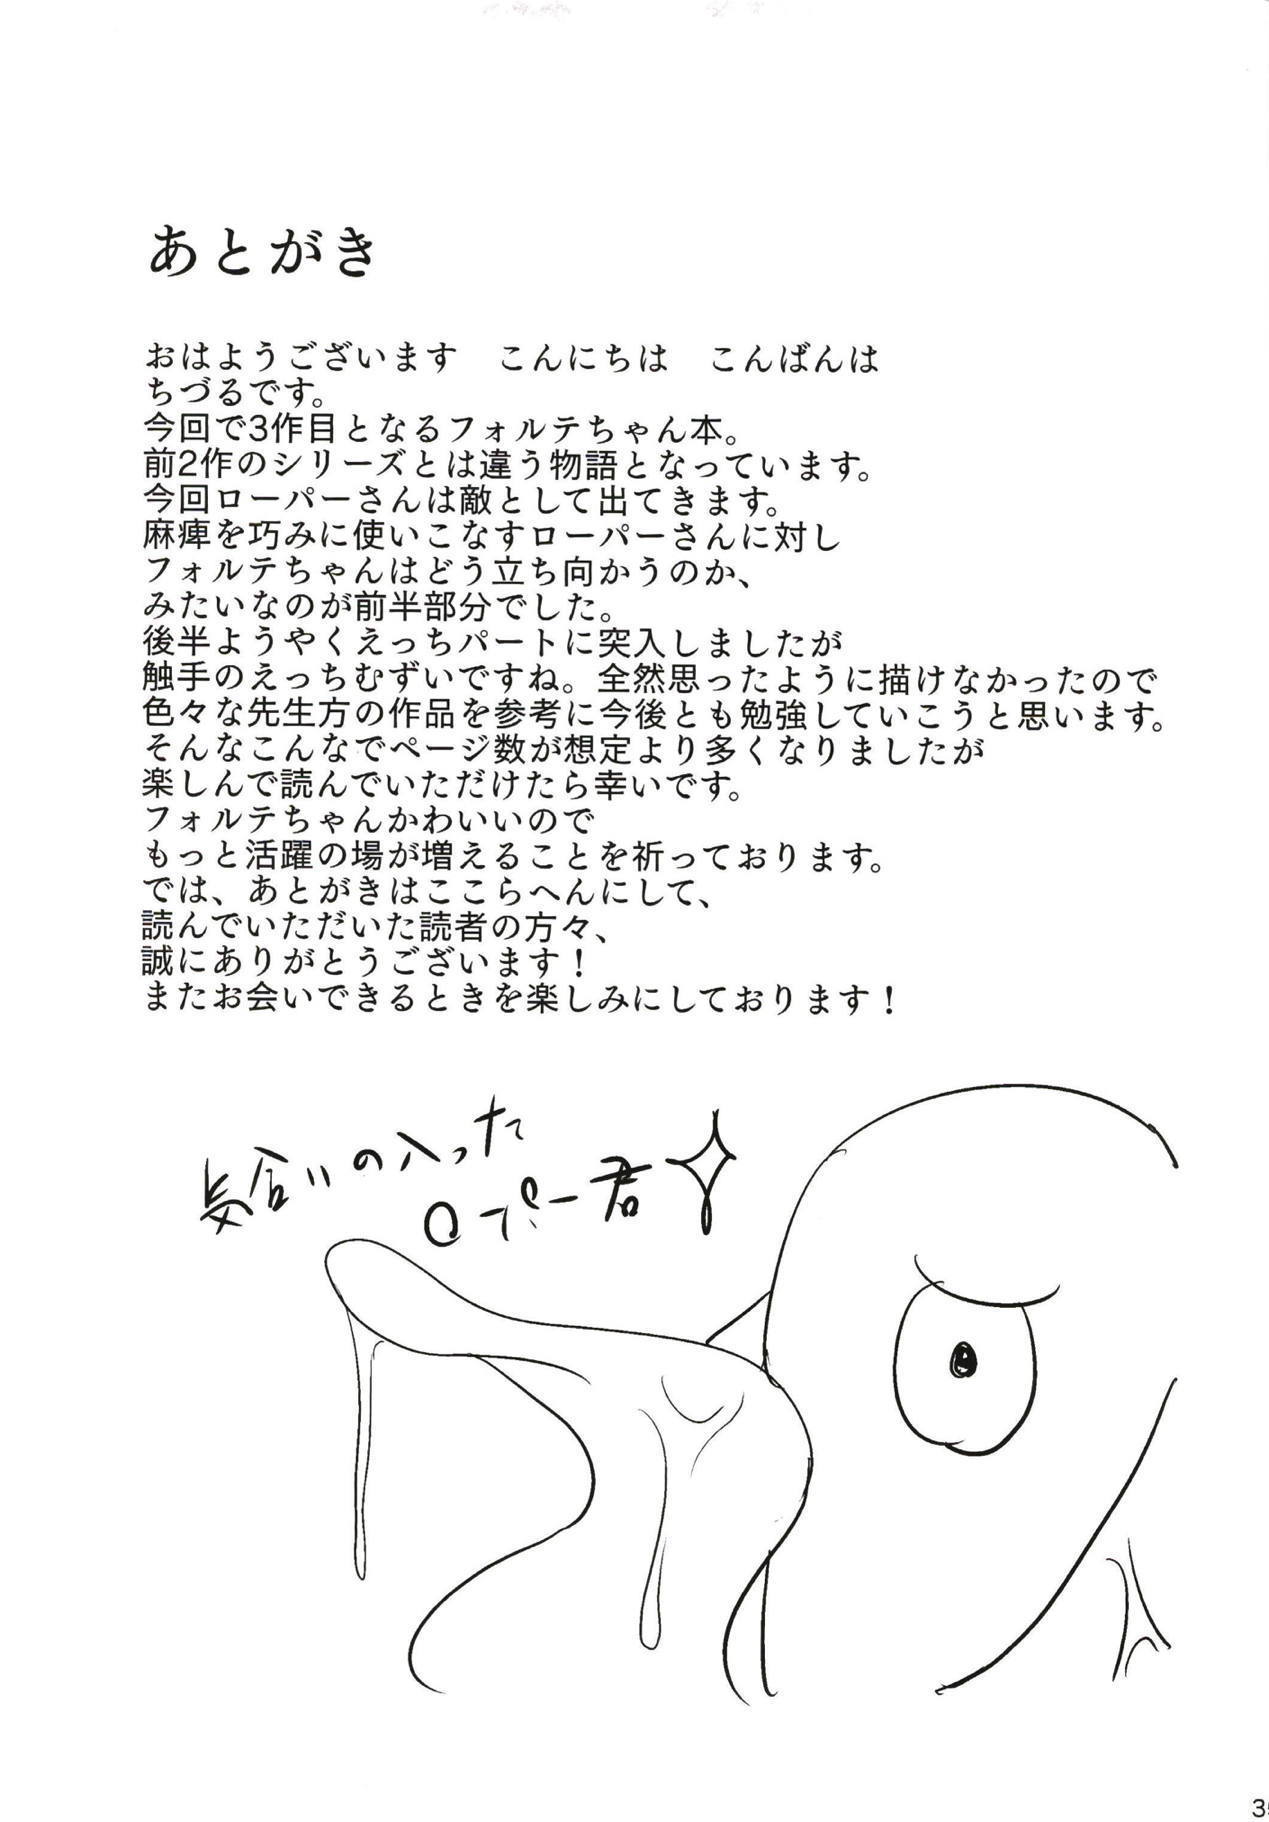 あとがき
おはようございます　こんにちは　こんばんは
ちづるです。
今回で3作目となるフォルテちゃん本。
前2作のシリーズとは違う物語となっています。
今回ローパーさんは敵として出てきます。
麻痺を巧みに使いこなすローパーさんに対し
フォルテちゃんはどう立ち向かうのか、
みたいなのが前半部分でした。
後半ようやくえっちパートに突入しましたが
触手のえっちむずいですね。全然思ったように描けなかったので
色々な先生方の作品を参考に今後とも勉強していこうと思います。
そんなこんなでページ数が想定より多くなりましたが
楽しんで読んでいただけたら幸いです。
フォルテちゃんかわいいので
もっと活躍の場が増えることを祈っております。
では、あとがきはここらへんにして、
読んでいただいた読者の方々、
誠にありがとうございます！
またお会いできるときを楽しみにしております！
気合いの入った
ロパー君